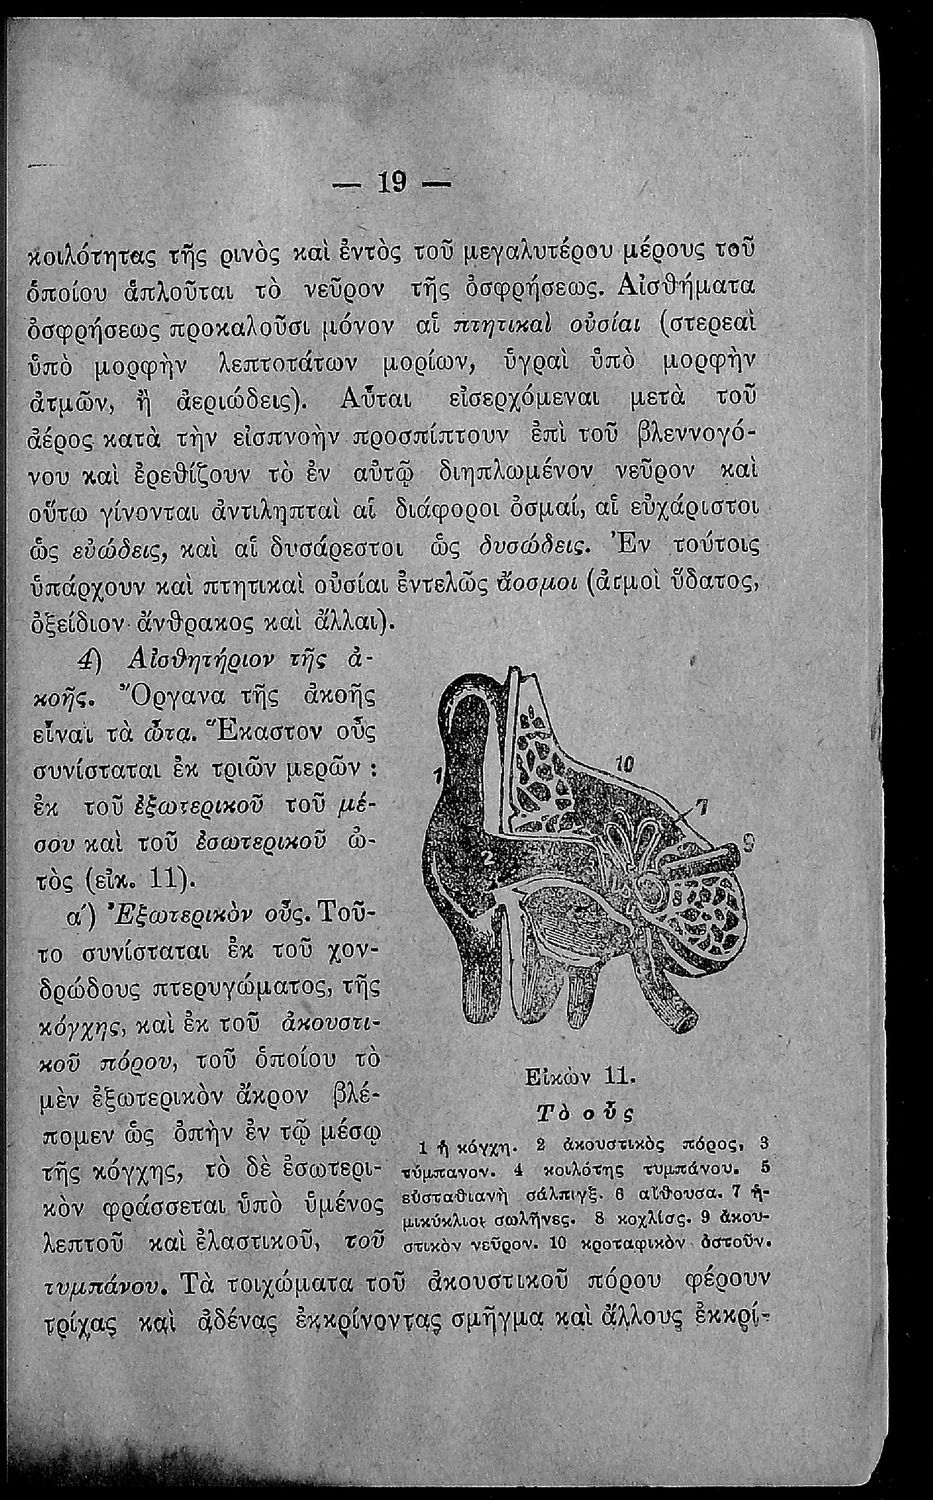 — 19 —
κοιλότητας τῆς ρινὸς καὶ ἐντὸς τοῦ μεγαλυτέρου μέρους τοῦ
ὁποίου ἁπλοῦται τὸ νεῦρον τῆς ὀσφρήσεως. Αἰσθήματα
ὀσφρήσεως προκαλοῦσι μόνον αἱ πτητικαὶ οὐσίαι (στερεαὶ
ὑπὸ μορφὴν λεπτοτάτων μορίων, ὑγραὶ ὑπὸ μορφὴν
ἀτμῶν, ἢ ἀεριώδεις). Αὗται εἰσερχόμεναι μετὰ τοῦ
ἀέρος κατὰ τὴν εἰσπνοὴν προσπίπτουν ἐπὶ τοῦ βλεννογό-
νου καὶ ἐρεθίζουν τὸ ἐν αὐτῷ διηπλωμένον νεῦρον καὶ
οὕτω γίνονται ἀντιληπταὶ αἱ διάφοροι ὀσμαί, αἱ εὐχάριστοι
ὡς εὐώδεις, καὶ αἱ δυσάρεστοι ὡς δυσώδεις. Ἐν τούτοις
ὑπάρχουν καὶ πτητικαὶ οὐσίαι ἐντελῶς ἄοσμοι (ἀτμοὶ ὕδατος,
ὀξείδιον ἄνθρακος καὶ ἄλλαι).
4) Αἰσθητήριον τῆς ἀ-
κοῆς. Ὄργανα τῆς ἀκοῆς
εἶναι τὰ ὦτα. Ἕκαστον οὖς
συνίσταται ἐκ τριῶν μερῶν :
ἐκ τοῦ ἐξωτερικοῦ τοῦ μέ-
σου καὶ τοῦ ἐσωτερικοῦ ὠ-
τὸς (εἰκ. 11).
α') Ἐξωτερικὸν οὖς. Τοῦ-
το συνίσταται ἐκ τοῦ χον-
δρώδους πτερυγώματος, τῆς
κόγχης, καὶ ἐκ τοῦ ἀκουστι-
κοῦ πόρου, τοῦ ὁποίου τὸ
μὲν ἐξωτερικὸν ἄκρον βλέ-
πομεν ὡς ὀπὴν ἐν τῷ μέσῳ
τῆς κόγχης, τὸ δὲ ἐσωτερι-
κὸν φράσσεται ὑπὸ ὑμένος
λεπτοῦ καὶ ἐλαστικοῦ, τοῦ
1
2
10
7
9
Εἰκὼν 11.
Τὸ οὖς
1 ἡ κόγχη. 2 ἀκουστικὸς πόρος, 3
τύμπανον. 4 κοιλότης τυμπάνου. 5
εὐσταθιανὴ σάλπιγξ. 6 αἴθουσα. 7 ἡ-
μικύκλιοι σωλῆνες. 8 κοχλίας. 9 ἀκου-
στικὸν νεῦρον. 10 κροταφικὸν ὀστοῦν.
τυμπάνου. Τὰ τοιχώματα τοῦ ἀκουστικοῦ πόρου φέρουν
τρίχας καὶ ἀδένας ἐκκρίνοντας σμῆγμα καὶ ἄλλους ἐκκρί-